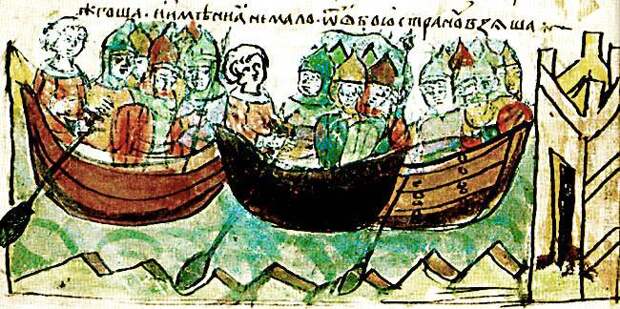 жгоша. и имѣниа немало. ѿѡбою страноу взѧша